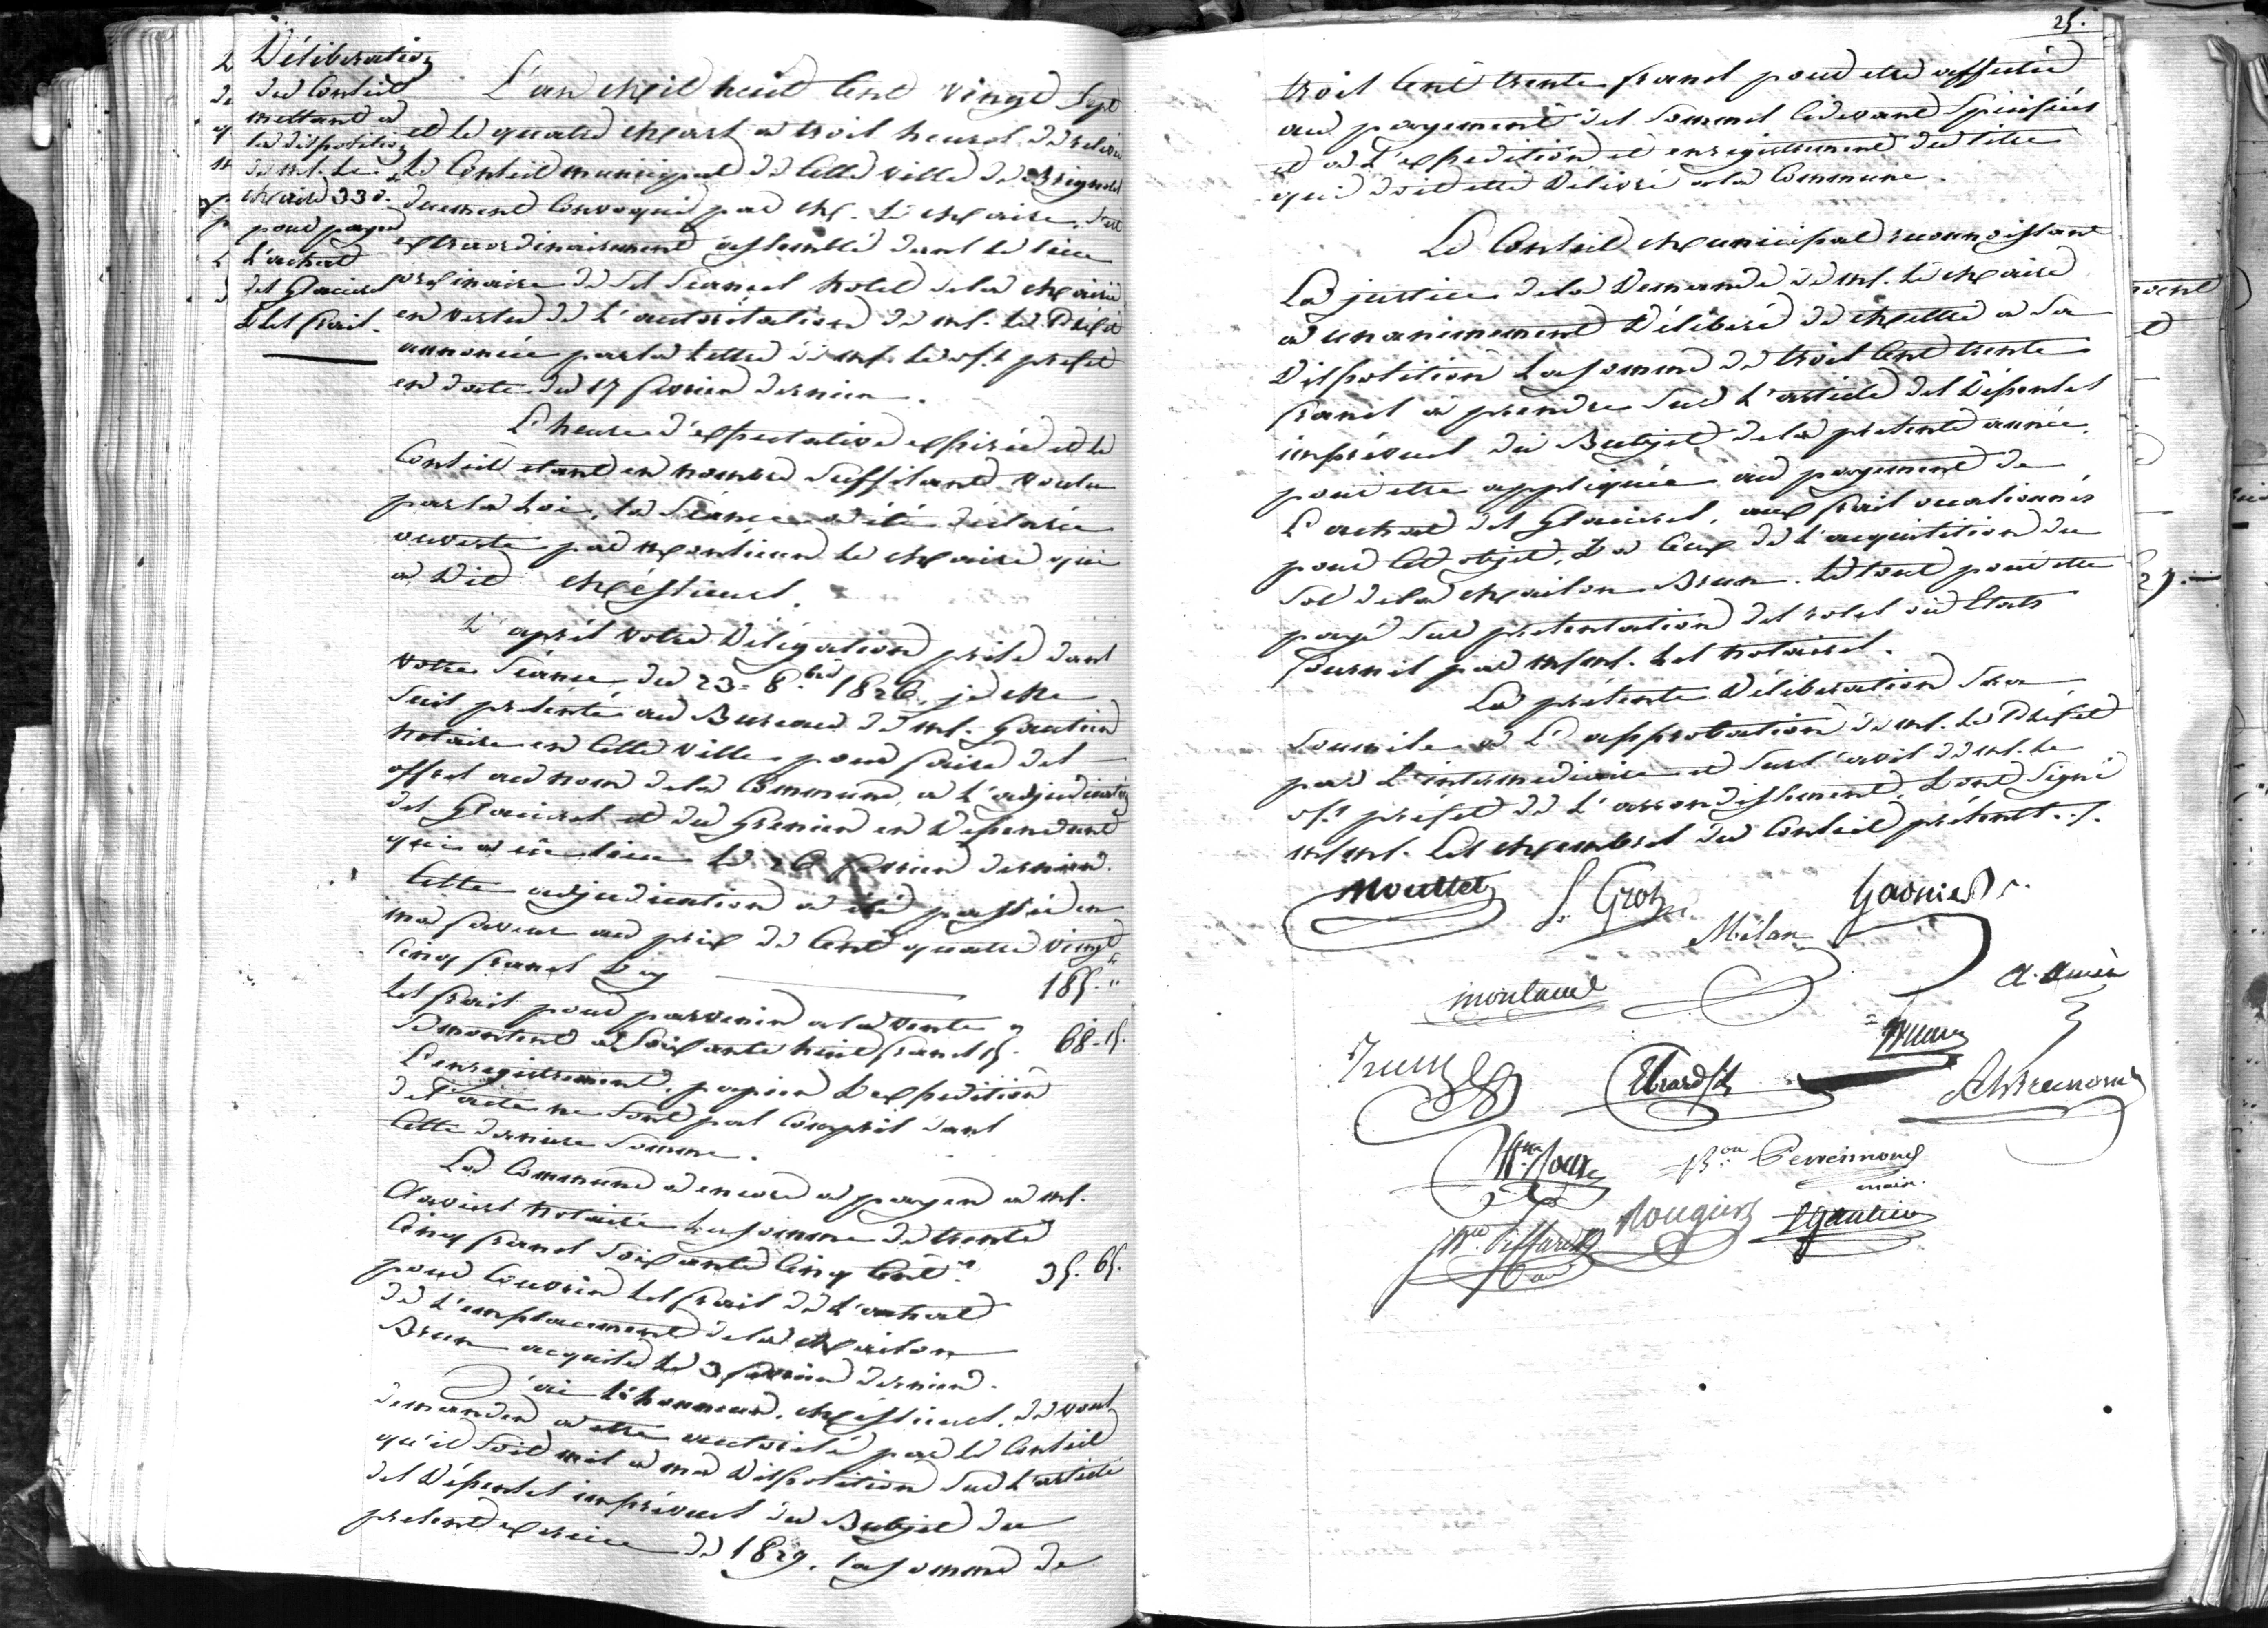 Délibération
du Conseil
mettant à
la disposition
de Mr. Le
Maire 330.
pour payer
L'achat
des Glacieres
& les frais.
L'an Mil huit Cent vingt Sept
et le quatre Mars à trois heures de relevée
Le Conseil municipal de Cette ville de Brignoles
duement Convoqué par Mr. Le Maire, s'est
extraordinairement assemblé dans le lieu
ordinaire de ses Séances hotel de la Mairie
en vertu de L'autorisation de Mr. Le Préfet
annoncée par la Lettre de Mr. Le Ss. prefet
en date du 17 fevrier dernier.
L'heure d'expectative expirée et le
Conseil etant en nombre Suffisant voulu
par la Loi, la Séance a été declarée
ouverte par Monsieur Le Maire qui
a Dit Messieurs.
D'après votre Délégation prise dans
votre Séance du 23 = 8.bre 1826, je me
suis présenté au Bureau de Mr. Gautier
notaire en Cette ville pour faire des
offres au nom de la Commune, a L'adjudication
des Glacieres et du Grenier en Dépendant
qui a eu lieu le 26 fevrier dernier.
Cette adjudication a été passée en
ma faveur au prix de Cent quatre vingt
Cinq francs Ci 185. "
Les frais pour parvenir a la vente
se montent à Soixante huit francs 15. 68-15.
L'enregistrement, papier & expedition
de l'acte ne sont pas Compris dans
Cette derniere Somme.
La Commune a encore a payer a Mr.
Clavier Notaire La somme de trente
Cinq francs Soixante Cinq Cent.es 35. 65.
pour Couvrir Les frais de L'achat
de L'emplacement de la Maison
Brun acquise Le 3 fevrier dernier.
J'ai L'honneur, Messieurs, de vous
demander a etre autorisé par Le Conseil
qu'il soit mis a ma Disposition sur L'article
des Dépenses imprévues du Budjet du
present exercice de 1827. la somme de
25.
trois Cent trente francs pour etre affectée
au payement des Sommes Cidevant Spécifiées
et a L'expedition et enregistrement du titre
qui doit etre Délivré a la Commune.
Le Conseil Municipal reconnoissant
La justice de la Demande de Mr. Le Maire
a unanimement Délibéré de Mettre a Sa
Disposition La somme de trois Cent trente
francs à prendre sur L'article des Dépenses
imprévues du Budjet de la presente année,
pour etre appliquée au payement de
L'achat des Glacieres, aux frais occasionnés
pour Cet objet, & a Ceux de L'acquisition du
Sol de la Maison Brun. Le tout pour etre
payé sur presentation des roles ou Etats
fournis par MrMr. Les Notaires.
La présente Délibération sera
soumise a L'approbation de Mr. Le Préfet
par L'intermediaire et sur l'avis de Mr. Le
Ss. préfet de L'arrondissement, & ont Signé
MrMr. Les Membres du Conseil présents ./.
Mouttet
L. Gros
Garnier
Milan
Montaud
Ebrard
Bon Perreimond
maire.
Rougiers
Gautier